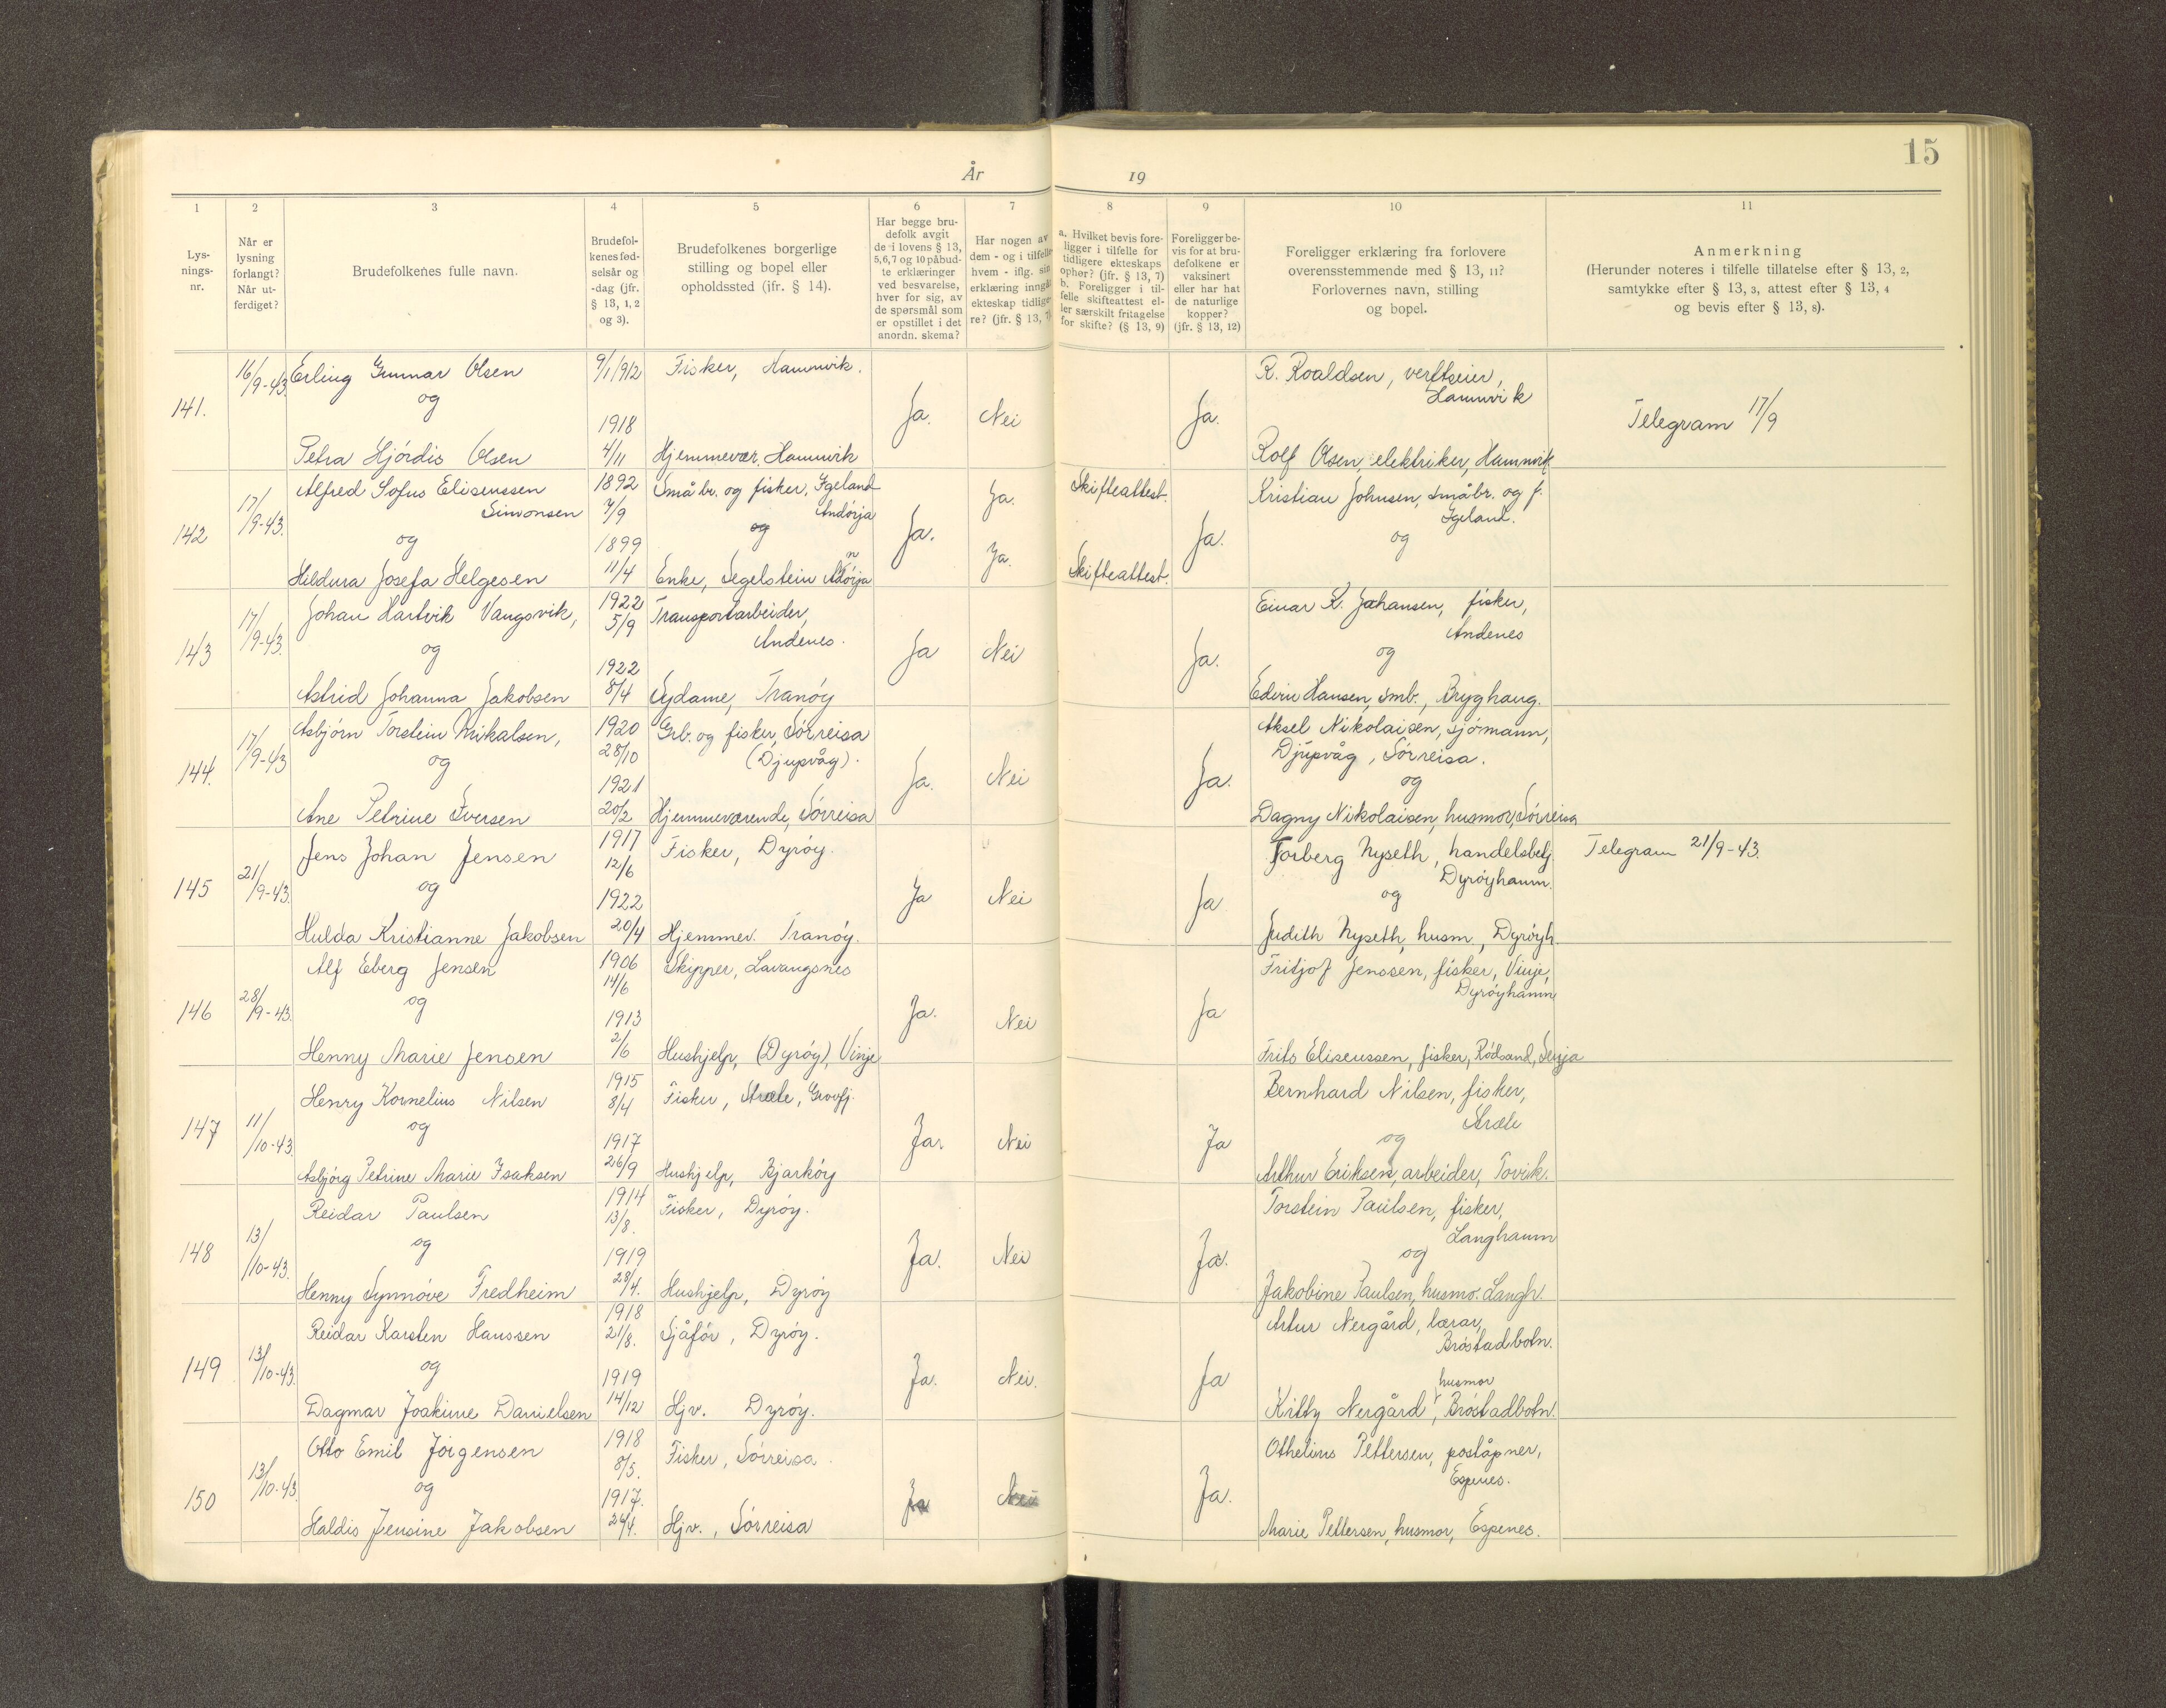 15
År 19
1
2
3
4
5
6
7
8
9
10
11
Lys-
nings-
nr.
Når er
lysning
forlangt?
Når ut-
ferdiget?
Brudefolkenes fulle navn.
Brudefol-
kenes fød-
selsår og
-dag (jfr.
§ 13, 1, 2
og 3).
Brudefolkenes borgerlige
stilling og bopel eller
opholdssted (jfr. § 14).
Har begge bru-
defolk avgit
de i lovens § 13,
5,6,7 og 10 påbud-
te erklæringer
ved besvarelse,
hver for sig, av
de spørsmål som
er opstillet i det
anordn. skema?
Har nogen av
dem - og i tilfelle
hvem - iflg. sin
erklæring inngå
ekteskap tidlige-
re? (jfr. § 13, 7)
a. Hvilket bevis fore-
ligger i tilfelle for
tidligere ekteskaps
ophør? (jfr. § 13, 7)
b. Foreligger i til-
felle skifteattest el-
ler særskilt fritagelse
for skifte? (§ 13, 9)
Foreligger be-
vis for at bru-
defolkene er
vaksinert
eller har hat
de naturlige
kopper?
(jfr. § 13, 12)
Foreligger erklæring fra forlovere
overensstemmende med § 13, 11?
Forlovernes navn, stilling
og bopel.
Anmerkning
(Herunder noteres i tilfelle tillatelse efter § 13, 2,
samtykke efter § 13, 3, attest efter § 13, 4
og bevis efter § 13, 8).
141. 16/9-43 Erling Gunnar Olsen 9/1 1912 Fisker, Hamnvik. R. Roaldsen, verftseier,
Hamnvik
og 1918 Ja. Nei Ja. Telegram 17/9
Petra Hjördis Olsen 4/11 Hjemmevær. Hamnvik Rolf Olsen, elektriker, Hamnvik
142 17/9-43. Alfred Sofus Eliseussen 1892 Små br. og fisker, Igeland Ja. Skifteattest. Kristian Johnsen, småbr. og f.
Simonsen 7/9 Andörja Igeland.
og 1899 og Ja. Ja. og
Hildura Josefa Helgesen 11/4 Enke, Segelstein Andörja Ja. Skifteattest.
143 17/9-43. Johan Hartvik Vangsvik, 1922 5/9 Transportarbeider, Einar K. Johansen, fisker,
Andenes. Andenes
og 1922 Ja Nei Ja. og
Astrid Johanna Jakobsen 8/4 Sydame, Tranöy Edvin Hansen, smb., Bryghaug.
144. 17/9-43 Asbjörn Torstein Mikalsen, 1920 28/10 Grb. og fisker, Sörreisa Aksel Nikolaisen, sjömann,
(Djupvåg). Djupvåg, Sörreisa.
og 1921 Ja. Nei Ja. og
Ane Petrine Iversen 20/2 Hjemmeværende, Sörreisa Dagny Nikolaisen, husmor, Sörreisa
145 21/9-43. Jens Johan Jensen 1917 12/6 Fisker, Dyröy. Torberg Nyseth, handelsbetj. Telegram 21/9-43.
Dyröyhamn.
og 1922 Ja Nei Ja og
Hulda Kristianne Jakobsen 20/4 Hjemmev. Tranöy. Judith Nyseth, husm., Dyröyh.
146 28/9-43. Alf Eberg Jensen 1906 14/6 Skipper, Lavangsnes Fritjof Jenssen, fisker, Vinje,
Dyröyhamn
og 1913 Ja. Nei Ja
Henny Marie Jensen 2/6 Hushjelp, (Dyröy), Vinje Frits Eliseussen, fisker, Rödsand, Senja
147 11/10-43. Henry Kornelius Nilsen 1915 8/4 Fisker, Aræle, Grovfj. Bernhard Nilsen, fisker,
Aræle
og 1917 Ja. Nei Ja og
Asbjörg Petrine Marie Isaksen 26/9 Hushjelp, Bjarköy Arthur Eriksen, arbeider, Tovik.
148 13/10-43. Reidar Paulsen 1914 13/8. Fisker, Dyröy. Torstein Paulsen, fisker,
Langhamn
og 1919 Ja. Nei Ja. og
Henny Synnöve Fredheim 28/4. Hushjelp, Dyröy Jakobine Paulsen, husmo. Langh.
149 13/10-43. Reidar Karsten Hanssen 1918 21/8. Sjåför, Dyröy. Artur Nergård, lærar,
Bröstadbotn.
og 1919 Ja. Nei. Ja
Dagmar Joakime Danielsen 14/12 Hjv. Dyröy. Kitty Nergård, husmor Bröstadbotn.
150 13/10-43. Otto Emil Jörgensen 1918 8/5. Fisker, Sörreisa. Othelius Pettersen, poståpner,
Espenes.
og 1917. Ja Nei Ja.
Haldis Jensine Jakobsen 24/4. Hjv., Sörreisa Marie Pettersen, husmor, Espenes.